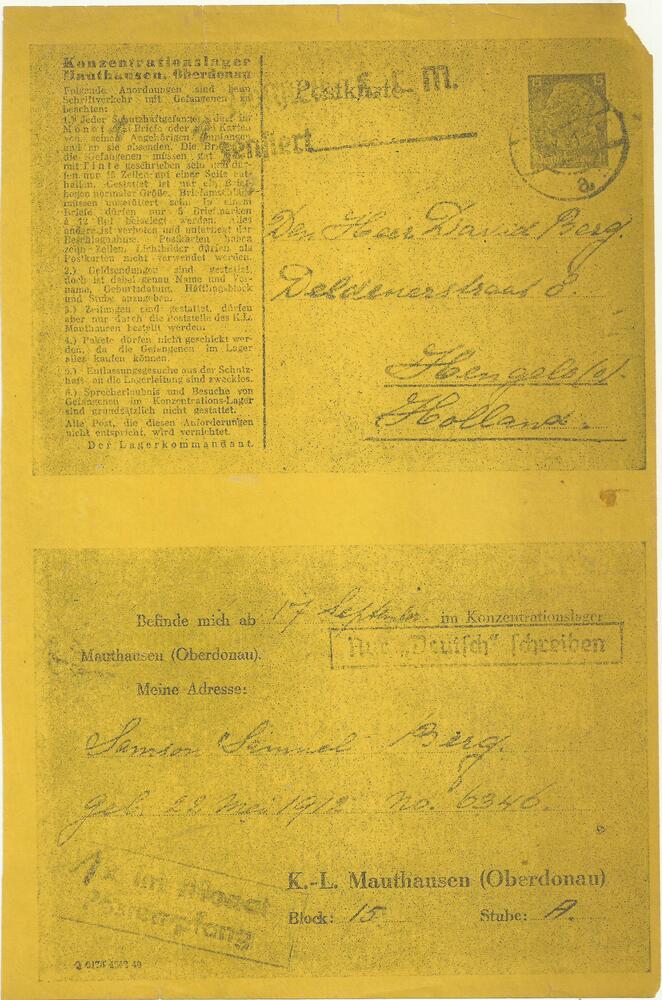 Konzentrationslager
Mauthausen, Oberdonau
Folgende Anordnungen sind beim
Schriftverkehr mit Gefangenen zu
beachten:
1.) Jeder Schutzhaftgefangene darf im
Monat Briefe oder Karten
von seinen Angehörigen empfangen
und an sie absenden. Die
die Gefangenen müssen gut
mit Tinte geschrieben sein und dür-
fen nur 15 Zeilen auf einer Seite ent-
halten. Gestattet ist nur ein Brief-
bogen normaler Größe. Briefumschläge
müssen ungefüttert sein. In einem
Briefe dürfen nur 5 Briefmarken
à 12 Rpf beigelegt werden. Alles
andere ist verboten und unterliegt der
Beschlagnahme. Postkarten haben
zehn Zeilen. Lichtbilder dürfen als
Postkarten nicht verwendet werden.
2.) Geldsendungen sind gestattet,
doch ist dabei genau Name und Vor-
name, Geburtsdatum, Häftlingsblock
und Stube anzugeben.
3.) Zeitungen sind gestattet, dürfen
aber nur durch die Poststelle des K.L.
Mauthausen bestellt werden.
4.) Pakete dürfen nicht geschickt wer-
den, da die Gefangenen im Lager
alles kaufen können.
5.) Entlassungsgesuche aus der Schutz-
haft an die Lagerleitung sind zwecklos.
6.) Sprecherlaubnis und Besuche von
Gefangenen im Konzentrations-Lager
sind grundsätzlich nicht gestattet.
Alle Post, die diesen Anforderungen
nicht entspricht, wird vernichtet.
Der Lagerkommandant.
Postkarte
M.
zensiert
15 15
a
Den Heer David Berg
Deldenerstraat 8.
Hengelo/o/
Holland.
Befinde mich ab 17 September im Konzentrationslager
Nur „Deutsch" schreiben
Mauthausen (Oberdonau).
Meine Adresse:
Samson Simmel Berg.
geb. 22 Mei 1912 No. 6346.
K.-L. Mauthausen (Oberdonau)
Block: 15 Stube: A.
1x im Monat
Postempfang